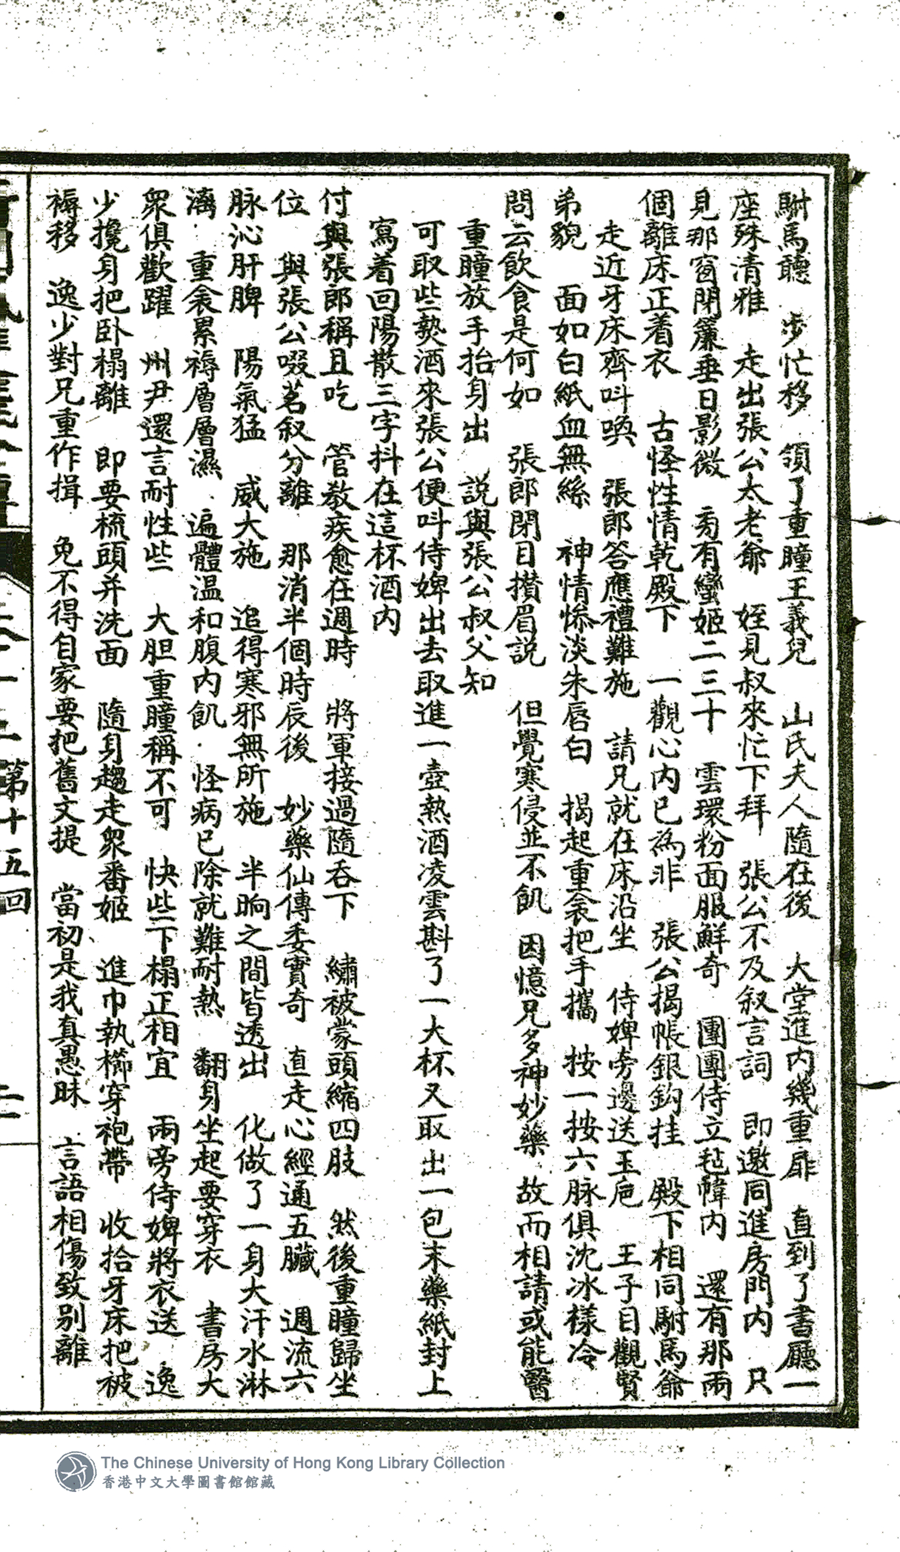 駙馬聽　步忙移　領了重瞳王義兒　山氏夫人隨在後　大堂進内幾重扉　直到了書廳一
座殊清雅　走出張公太老爺　姪見叔來忙下拜　張公不及叙言詞　即邀同進房門内　只
見那窗閉簾垂日影微　旁有蠻姬二三十　雲環粉面服鮮奇　團團侍立毡幃内　還有那兩
個離床正着衣　古怪性情乾殿下　一觀心内已爲非　張公揭帳銀鈎挂　殿下相同駙馬爺
走近牙床齊叫喚　張郎答應禮難施　請兄就在床沿坐　侍婢旁邊送玉卮　王子目觀賢
弟貌　面如白紙血無絲　神情慘淡朱唇白　揭起重衾把手攜　按一按六脉俱沈冰樣冷
問云飲食是何如　張郎閉目攢眉説　但覺寒侵並不飢　因憶兄多神妙藥　故而相請或能醫
重瞳放手抬身出　説與張公叔父知
可取些熱酒來張公便叫侍婢出去取進一壺熱酒凌雲斟了一大杯又取出一包末藥紙封上
寫着回陽散三字抖在這杯酒内
付與張郎稱且吃　管教疾愈在週時　將軍接過隨吞下　繡被蒙頭縮四肢　然後重瞳歸坐
位　與張公啜茗叙分離　那消半個時辰後　妙藥仙傳委實奇　直走心經通五臟　週流六
脉沁肝脾　陽氣猛　威大施　追得寒邪無所施　半晌之間皆透出　化做了一身大汗水淋
漓　重衾累褥層層濕　遍體温和腹内飢　怪病已除就難耐熱　翻身坐起要穿衣　書房大
衆俱歡躍　州尹還言耐性些　大胆重瞳稱不可　快些下榻正相宜　兩旁侍婢將衣送　逸
少攙身把卧榻離　即要梳頭并洗面　隨身趨走衆番姬　進巾執櫛穿袍帶　收拾牙床把被
褥移　逸少對兄重作揖　免不得自家要把舊文提　當初是我真愚昧　言語相傷致别離
第十五回
The Chinese University of Hong Kong Library Collection
香港中文大學圖書館館藏